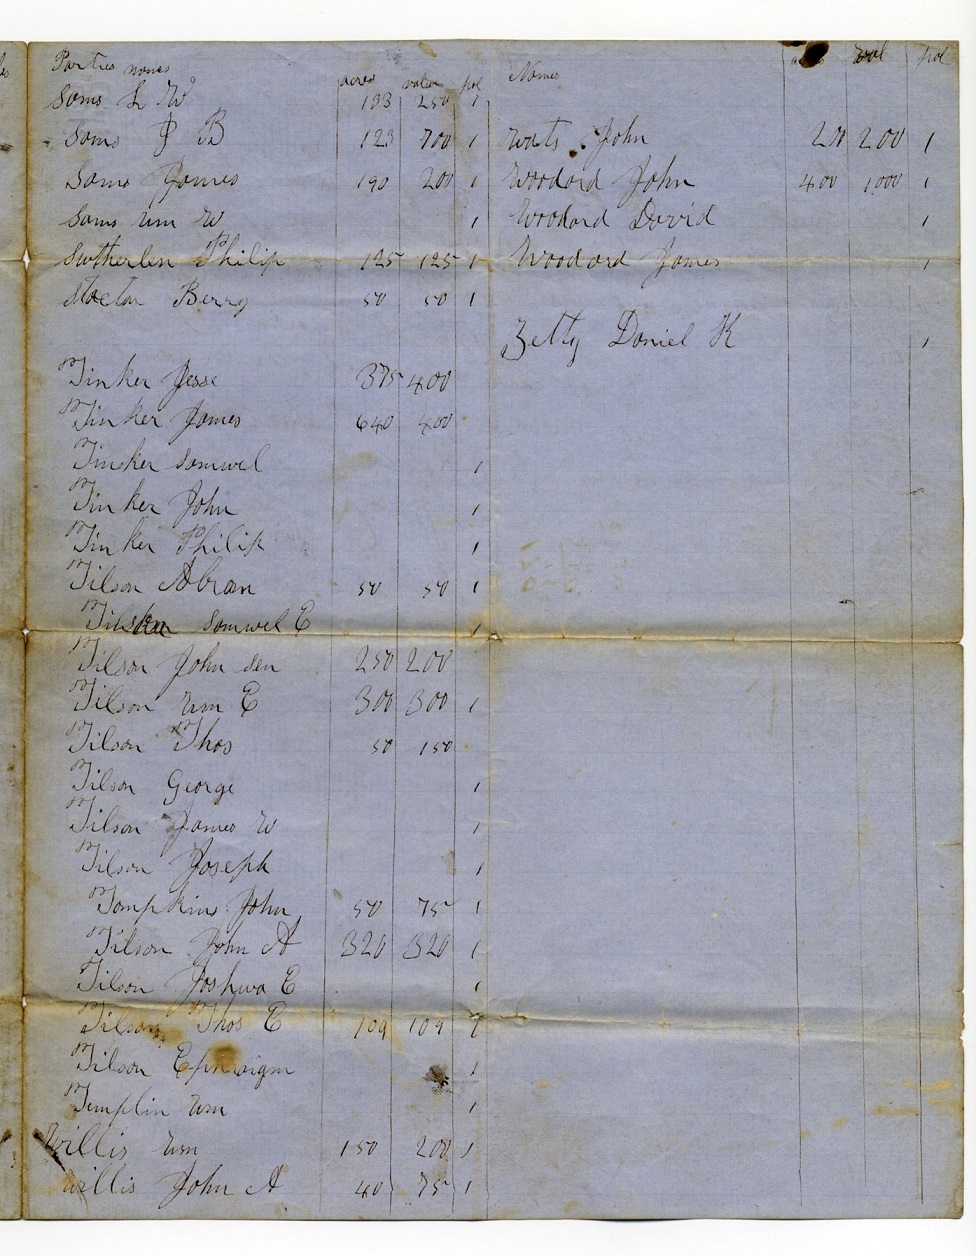 Parties names acres value pol
Sams L W 133 250 1
Sams J B 123 700 1
Sams James 190 200 1
Sams Wm W 1
Sutherlin Philip 125 125 1
Stocton Berry 50 50 1
Tinker Jesse 375 400
Tinker James 640 400
Tincker Samuel 1
Tinker John 1
Tinker Philip 1
Tilson Abram 50 50 1
Tilson Samuel E 1
Tilson John Sen 250 200
Tilson Wm E 300 300 1
Tilson Thos 50 150
Tilson George 1
Tilson James W 1
Tilson Joseph 1
Tompkins John 50 75 1
Tilson John A 320 320 1
Tilson Joshua E 1
Tilson Thos E 109 109 1
Tilson Ephraigm 1
Templin Wm 1
Willis Wm 150 200 1
Willis John A 40 75 1
Names val pol
Wats John 200 200 1
Woodard John 400 1000 1
Woodard David 1
Woodard James 1
Zetty Daniel K 1